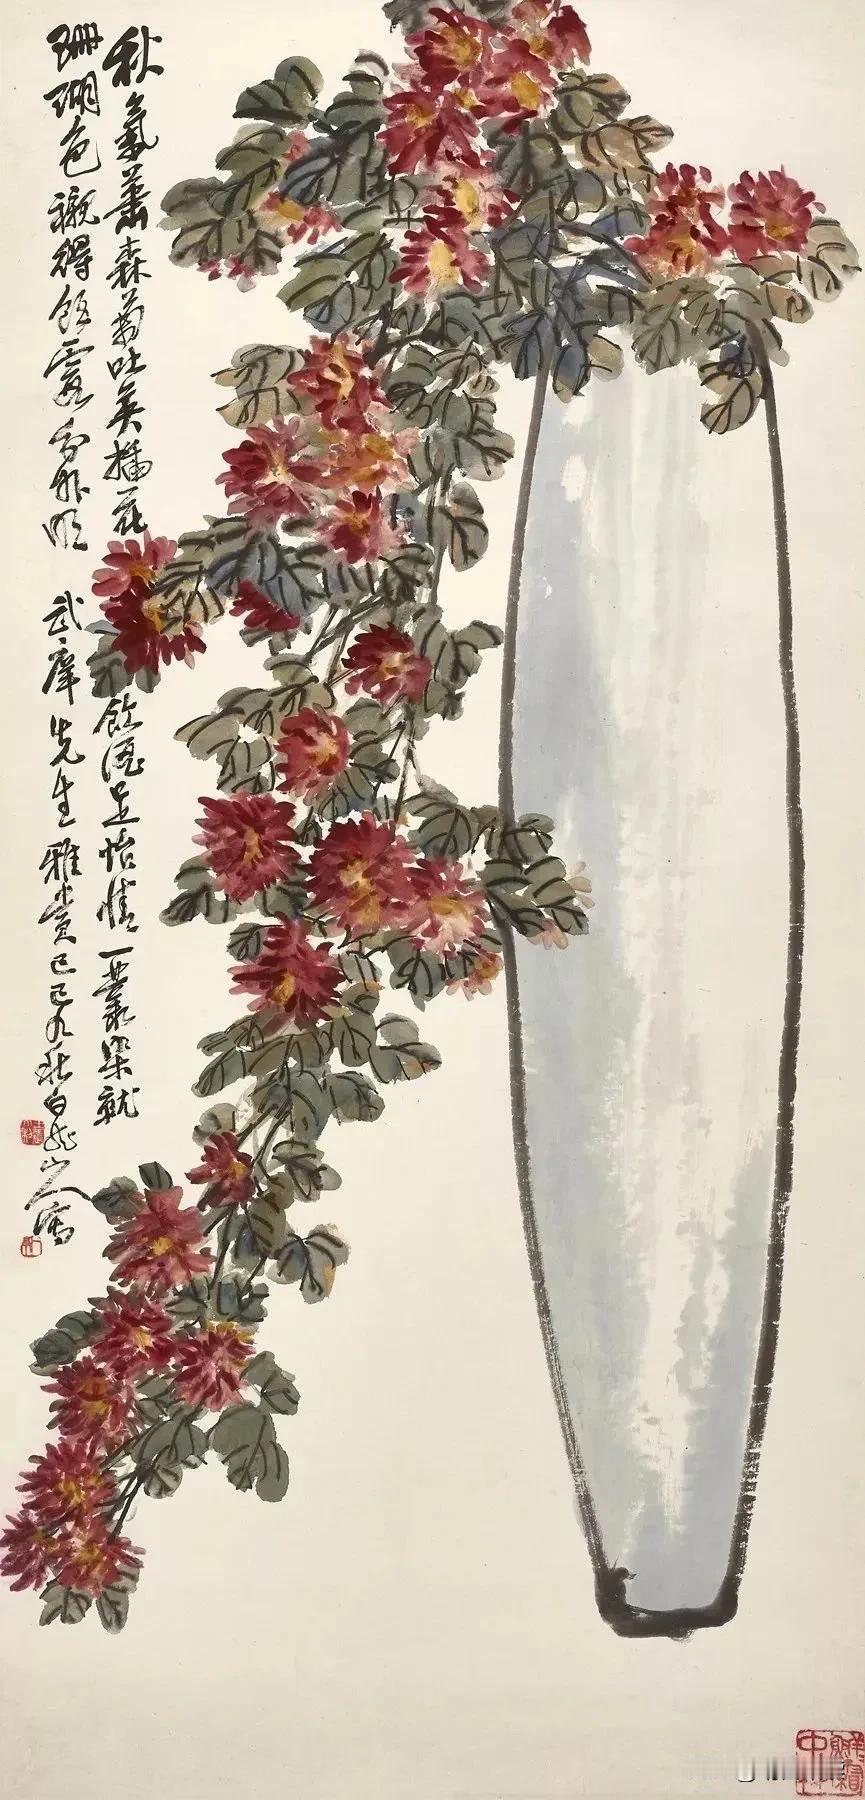 秋氣蕭森菊吐英插花飲酒足怡情一叢染就
珊瑚色襯得飽露分外明
武 先生雅賞己巳九秋白龍山人寫